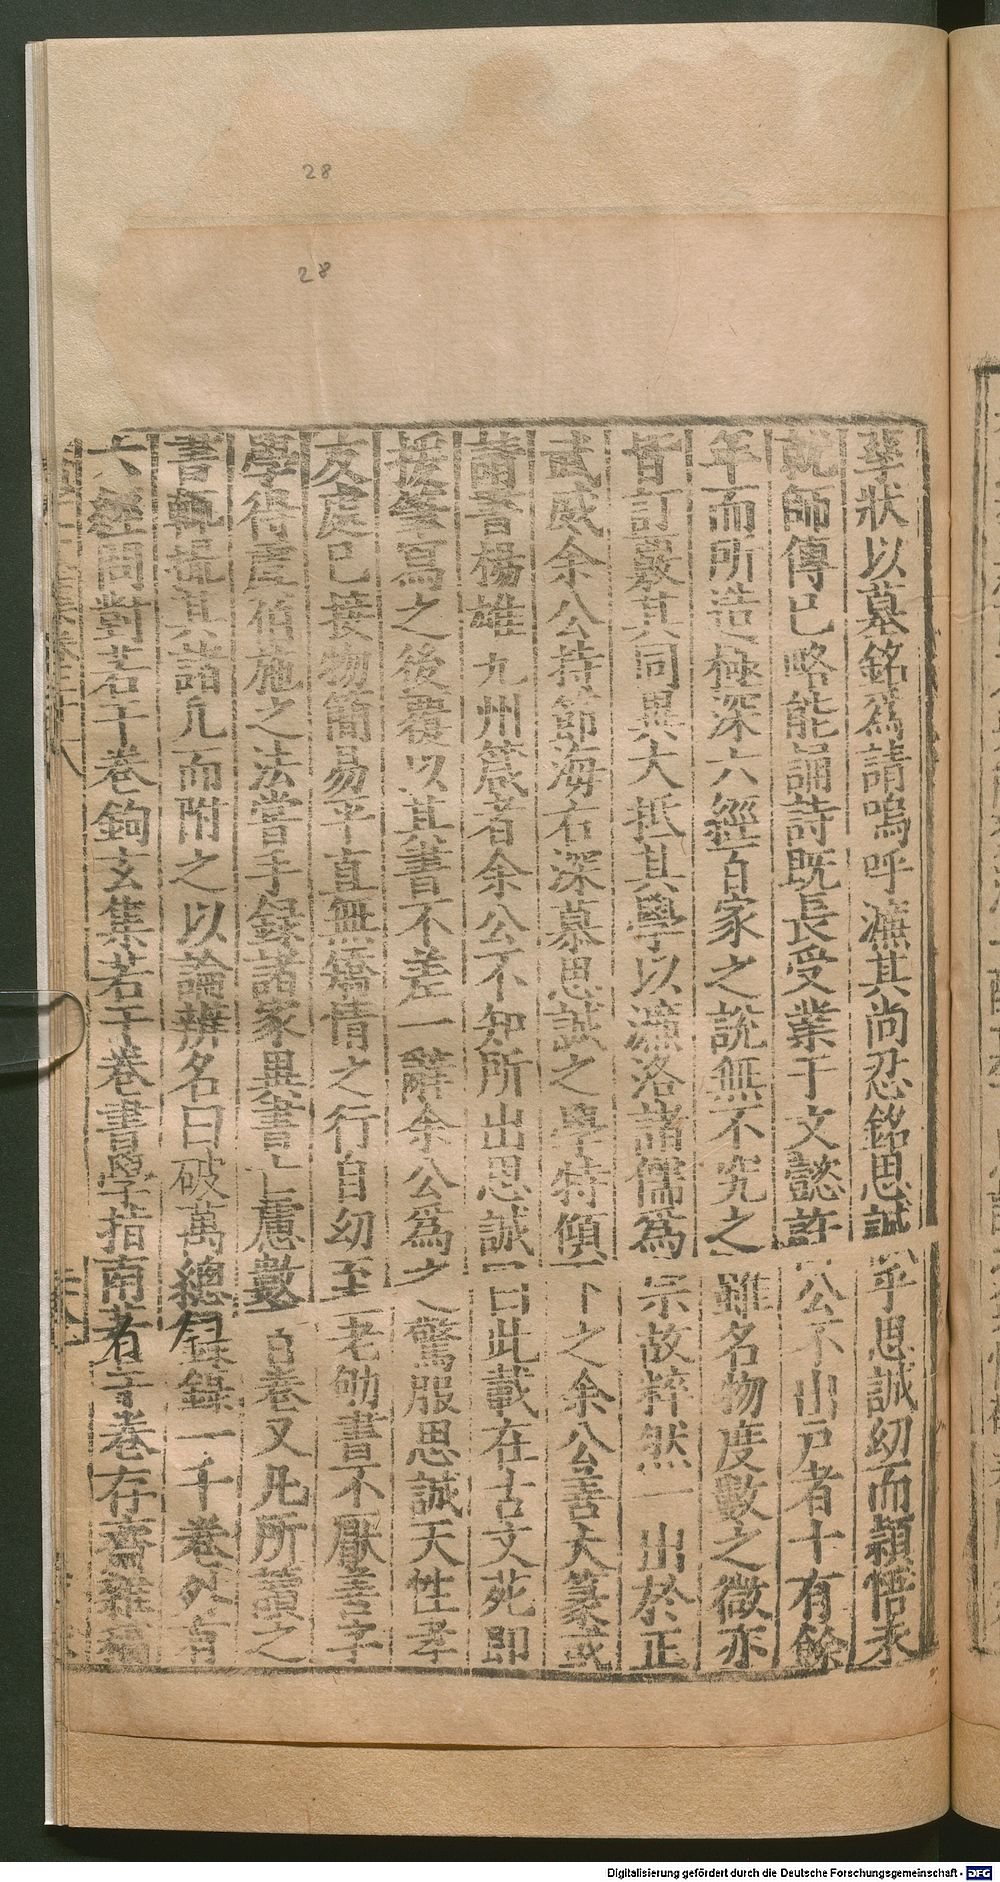 28
28
狀以墓銘爲請嗚呼濂其尚忍銘思誠乎思誠幼而穎悟未
就師傅已略能誦詩既長受業于文懿許公不出戸者十有餘
年而所造極深六經百家之說無不究之雖名物度數之微亦
皆訂覈其同異大抵其學以濂洛諸儒爲宗故粹然一出於正
武威余公持節海右深慕思誠之學特傾下之余公善大篆或
書楊雄九州箴者余公不知所出思誠曰此載在古文苑即
援筆寫之後覆以其書不差一辭余公爲之驚服思誠天性孝
友處已接物簡易平直無矯情之行自幼至老劬書不厭善予
學得虞伯施之法嘗手録諸家異書慮數百卷又凡所讀之
書輒掇其諸凡而附之以論辨名曰破萬總録録一千卷外有
六經問對若干卷鉤玄集若干卷書學指南若干卷存齋雜
Digitalisierung gefördert durch die Deutsche Forschungsgemeinschaft - DFG